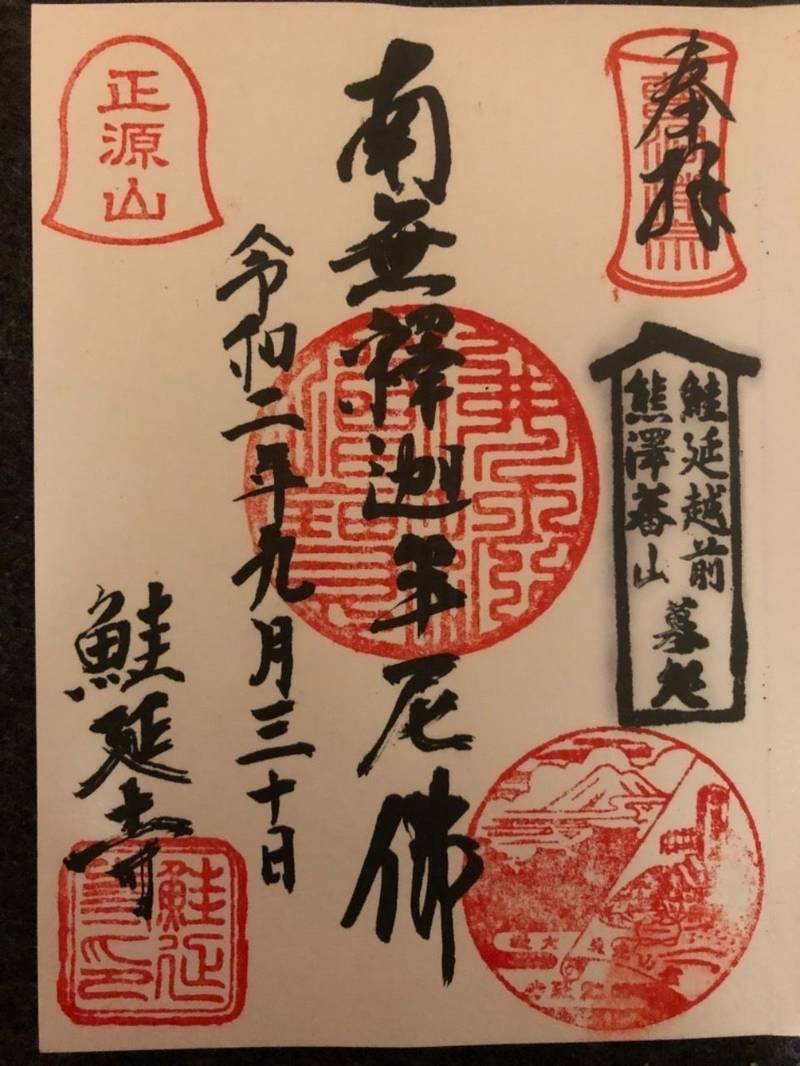 奉拝
鮭延越前
熊澤蕃山
墓処
南無釋迦牟尼佛
令和二年九月三十日
正源山
鮭延寺
鮭延
寺印